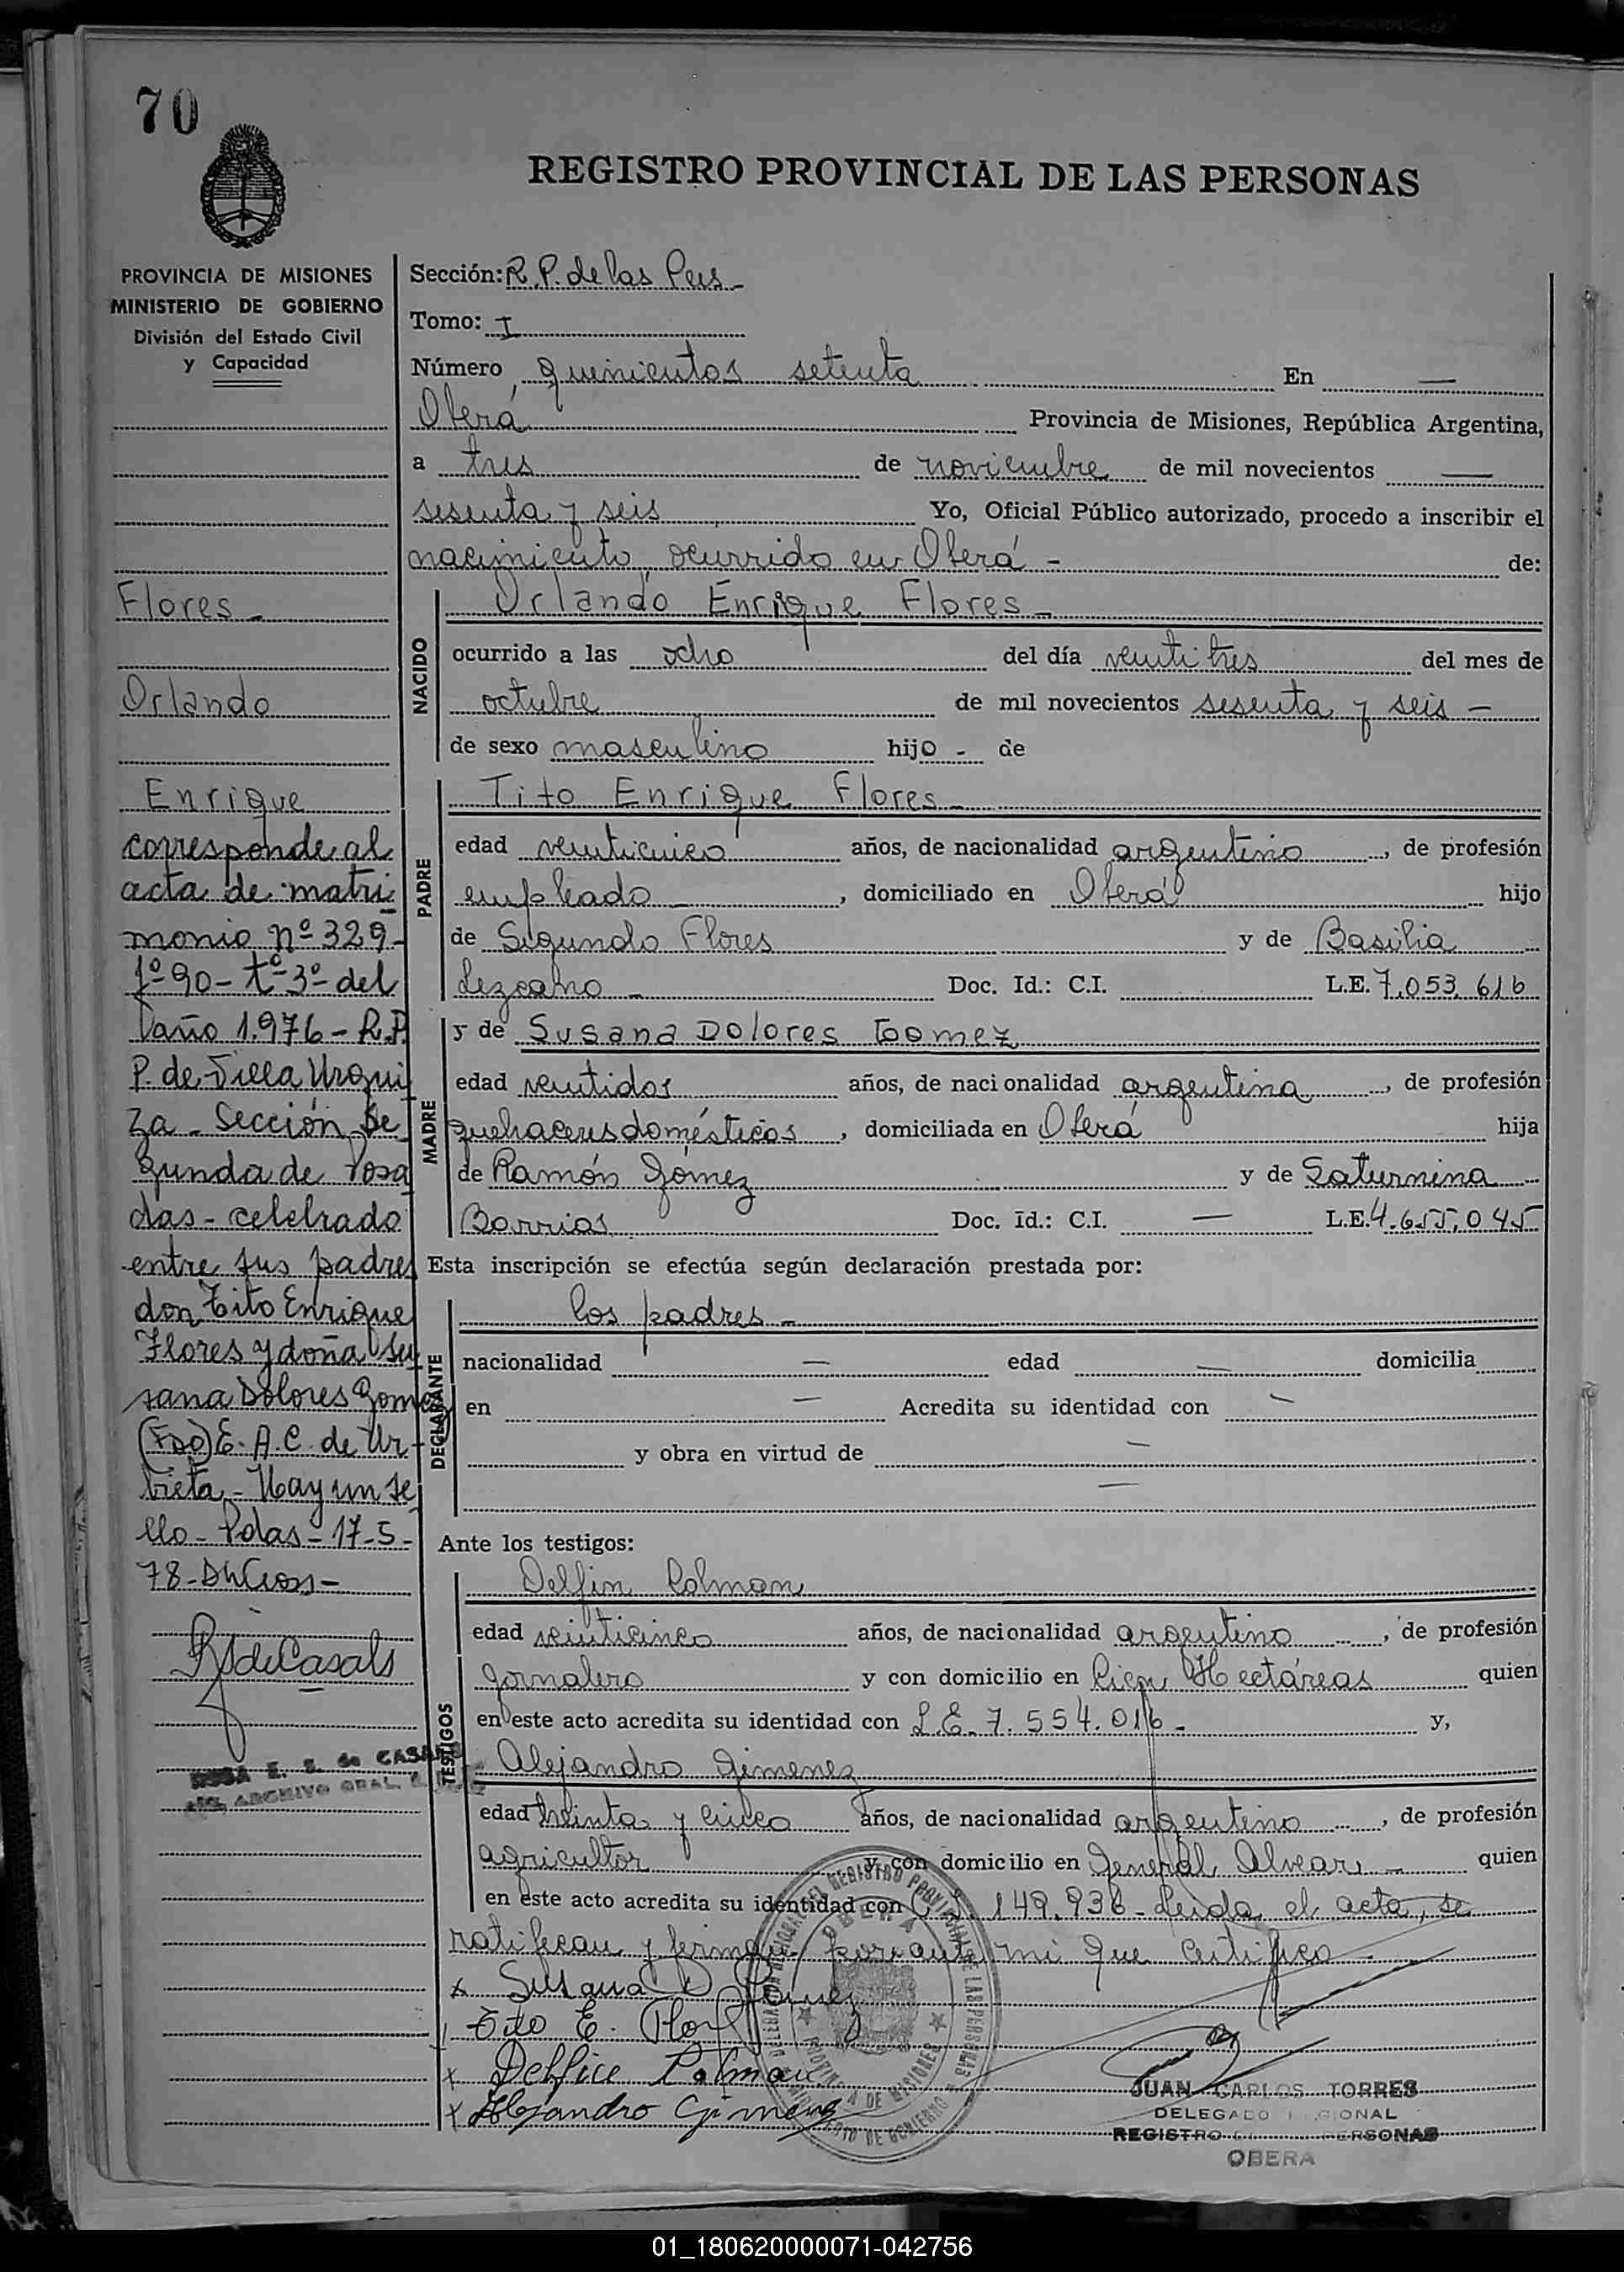 70
REGISTRO PROVINCIAL DE LAS PERSONAS
PROVINCIA DE MISIONES
MINISTERIO DE GOBIERNO
División del Estado Civil
y Capacidad
Flores -
Orlando
Enrique
corresponde al
acta de matri
monio nº 329-
fº 90 - tº 3º del
año 1.976 - R.P.
P. de Villa Urqui
za - Sección Se
gunda de Posa
das - celebrado
entre sus padres
don Tito Enrique
Flores y doña Su
sana Dolores Gomez
(Fdo) E. A. C. de Ur-
bieta - Hay un se
llo - Pdas - 17-5-
78 -
RSdeCasals
E. S. de CASALS
ARCHIVO GRAL.
Sección: R.P. de las Pers -
Tomo: I
Número quinientos setenta En —
Oberá Provincia de Misiones, República Argentina,
a tres de noviembre de mil novecientos —
sesenta y seis Yo, Oficial Público autorizado, procedo a inscribir el
nacimiento ocurrido en Oberá - de:
NACIDO
Orlando Enrique Flores -
ocurrido a las ocho del día veintitres del mes de
octubre de mil novecientos sesenta y seis -
de sexo masculino hijo - de
PADRE
Tito Enrique Flores -
edad veinticinco años, de nacionalidad argentino, de profesión
empleado - , domiciliado en Oberá hijo
de Segundo Flores y de Basilia
Lezcano - Doc. Id.: C.I. L.E. 7.053.616
MADRE
y de Susana Dolores Gomez
edad veintidos años, de nacionalidad argentina, de profesión
quehaceres domésticos, domiciliada en Oberá hija
de Ramón Gómez y de Saturnina
Barrios Doc. Id.: C.I. — L.E. 4.655.045
Esta inscripción se efectúa según declaración prestada por:
DECLARANTE
los padres -
nacionalidad — edad — domicilia
en — Acredita su identidad con —
y obra en virtud de —
—
Ante los testigos:
TESTIGOS
Delfin Colman
edad veinticinco años, de nacionalidad argentino, de profesión
jornalero y con domicilio en Cien Hectáreas quien
en este acto acredita su identidad con L.E. 7.554.016 - y,
Alejandro Gimenez
edad treinta y cinco años, de nacionalidad argentino, de profesión
agricultor y con domicilio en General Alvear - quien
en este acto acredita su identidad con C.I. 149.936 - Leida el acta, se
ratifican y firman por ante mi que certifico
x Susana D Gomez
Tito E. Flores
x Delfin Colman
x Alejandro Gimenez
DELEGACION REGIONAL DEL REGISTRO PROVINCIAL DE LAS PERSONAS
OBERA
PROVINCIA DE MISIONES
MINISTERIO DE GOBIERNO
JUAN CARLOS TORRES
DELEGADO REGIONAL
REGISTRO PERSONAS
OBERA
01_180620000071-042756